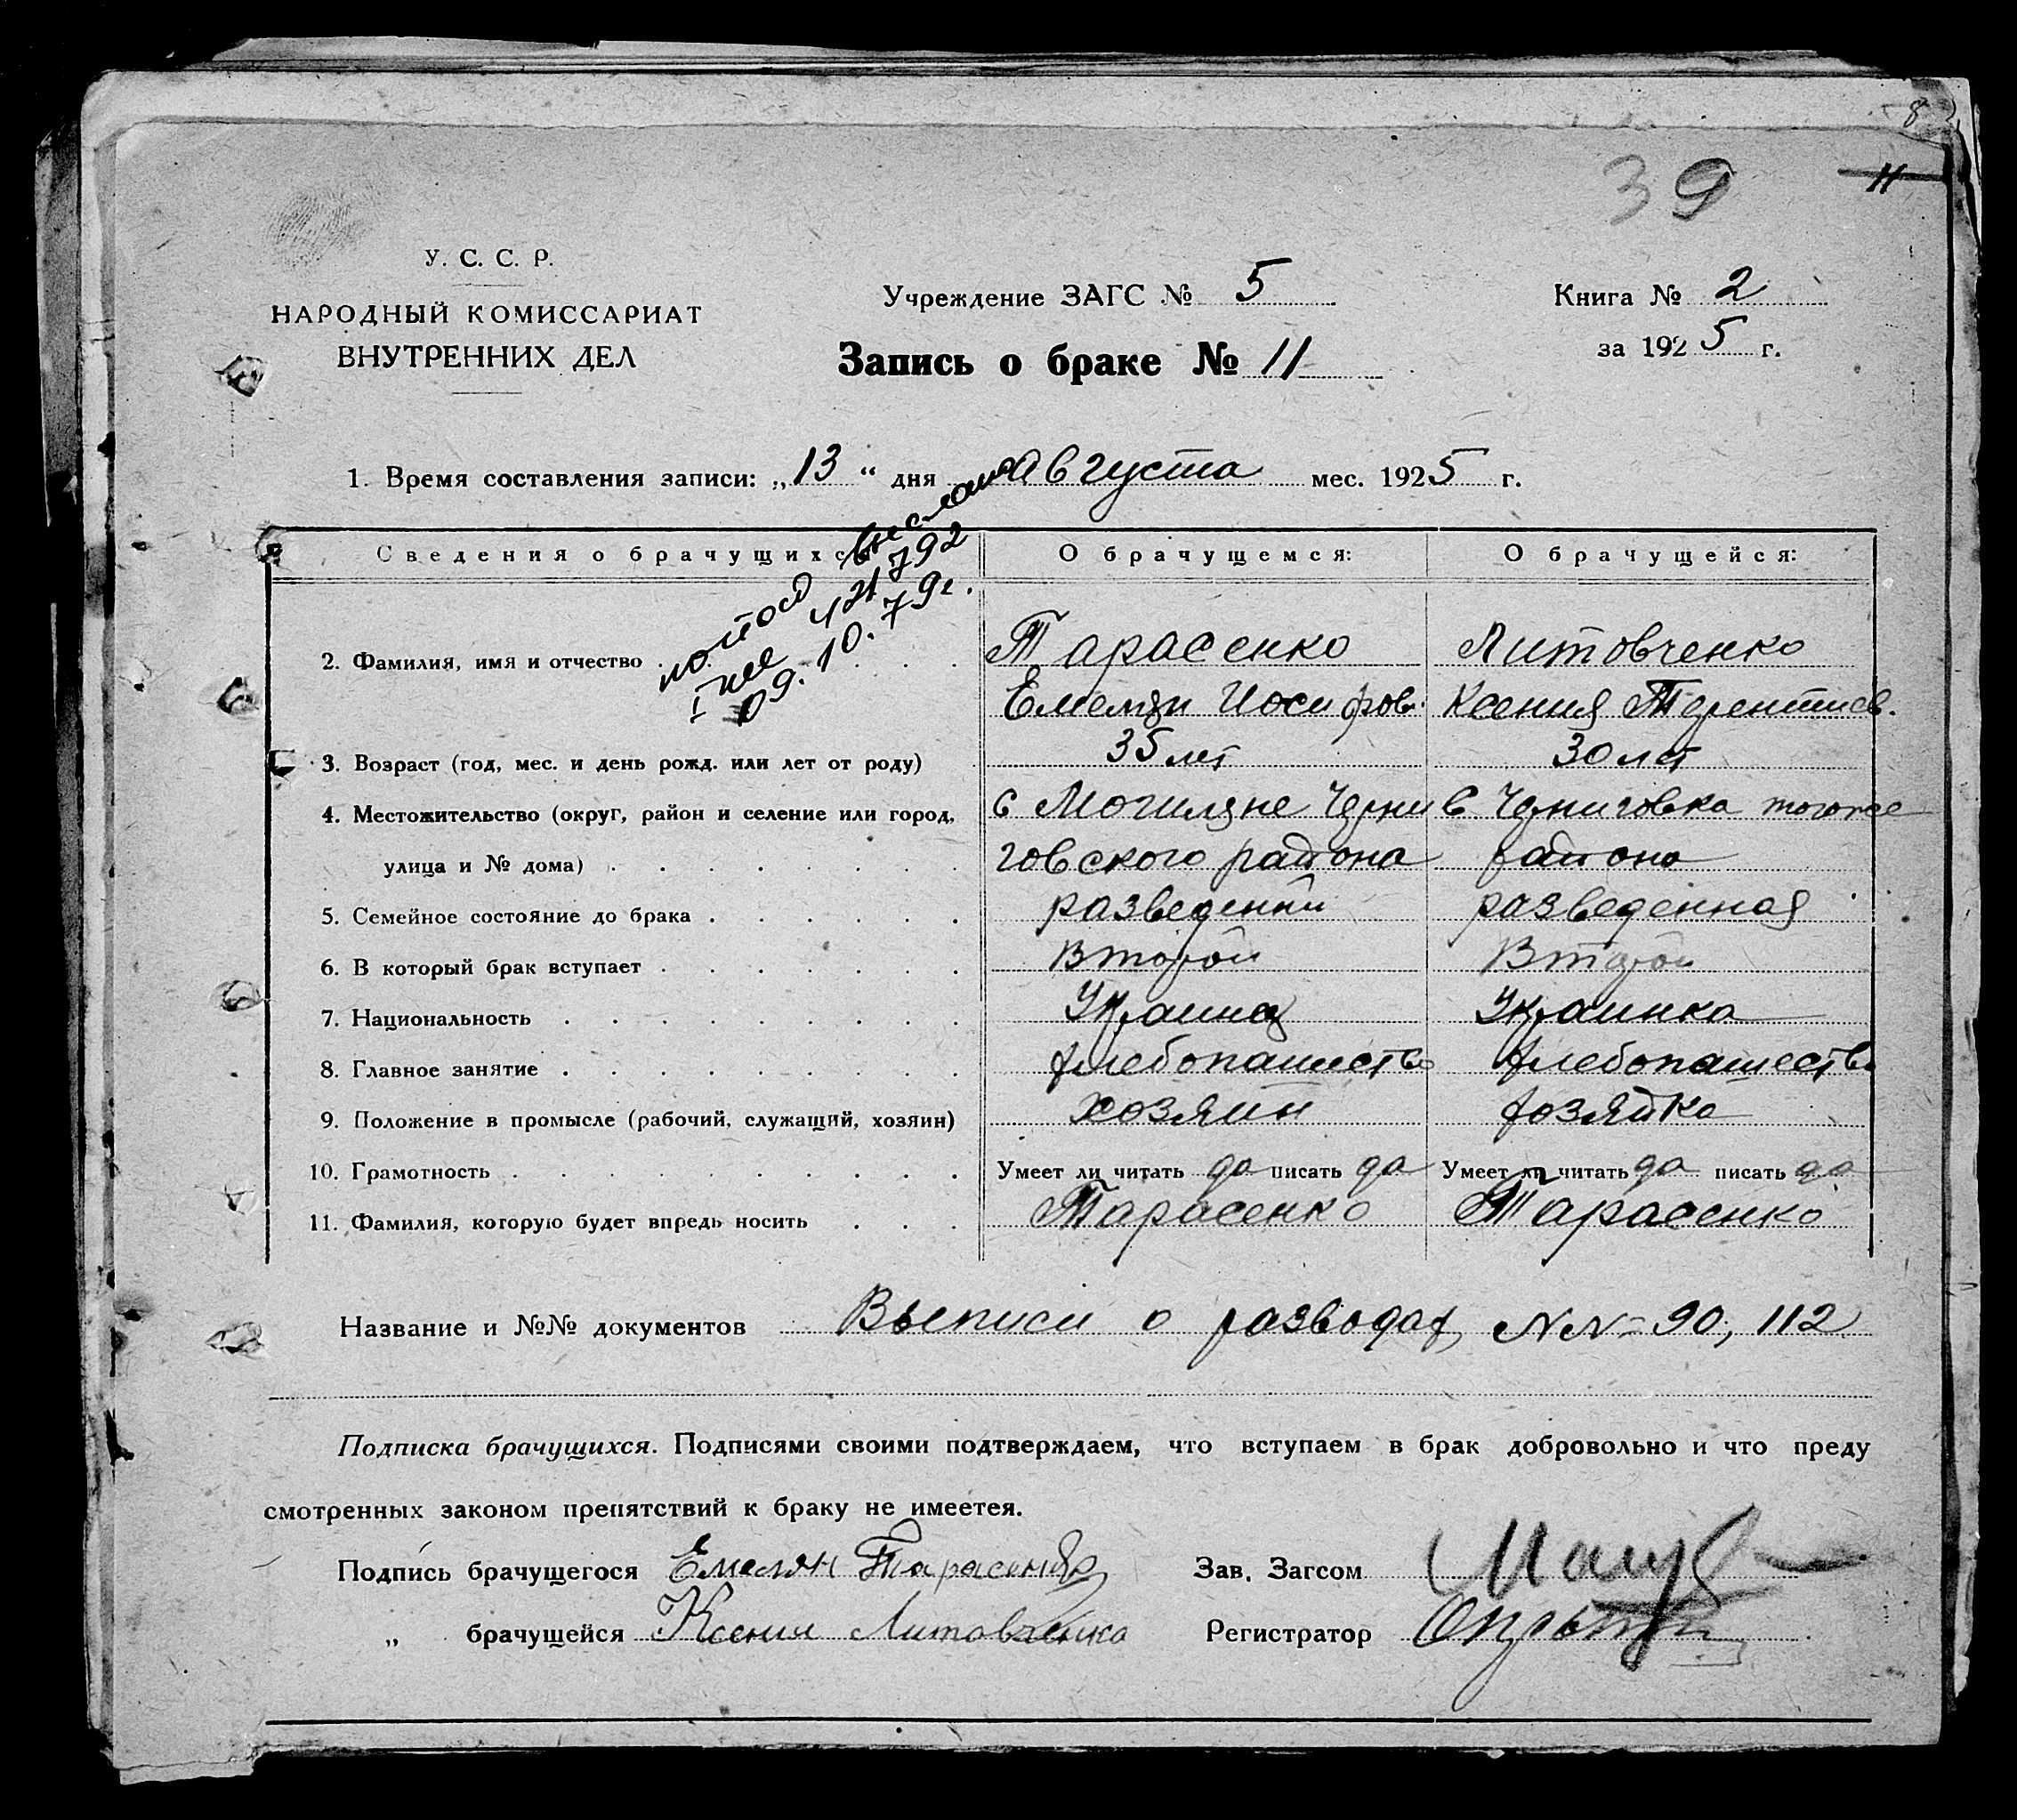 8
39
11
У. С. С. Р.
НАРОДНЫЙ КОМИССАРИАТ
ВНУТРЕННИХ ДЕЛ
Учреждение ЗАГС № 5
Запись о браке № 11
Книга № 2
за 1925 г.
1. Время составления записи: „13“ дня августа мес. 1925 г.
Сведения о брачущихся О брачущемся: О брачущейся:
09.10.79г.
2. Фамилия, имя и отчество Тарасенко Литовченко
Емелян Иосифов. Ксения Терентиев.
3. Возраст (год, мес. и день рожд. или лет от роду) 35 лет 30 лет
4. Местожительство (округ, район и селение или город, с Могиляне Черни с Черниговка того же
улица и № дома) говского района района
5. Семейное состояние до брака разведений разведенная
6. В который брак вступает Второй Второй
7. Национальность Украинец Украинка
8. Главное занятие хлебопашество хлебопашество
9. Положение в промысле (рабочий, служащий, хозяин) хозяин хозяйка
10. Грамотность Умеет ли читать да писать да Умеет ли читать да писать да
11. Фамилия, которую будет впредь носить Тарасенко Тарасенко
Название и №№ документов Выписи о разводах NN- 90, 112
Подписка брачущихся. Подписями своими подтверждаем, что вступаем в брак добровольно и что преду
смотренных законом препятствий к браку не имеетея.
Подпись брачущегося Емелян Тарасенко Зав. Загсом
„ брачущейся Ксения Литовченко Регистратор